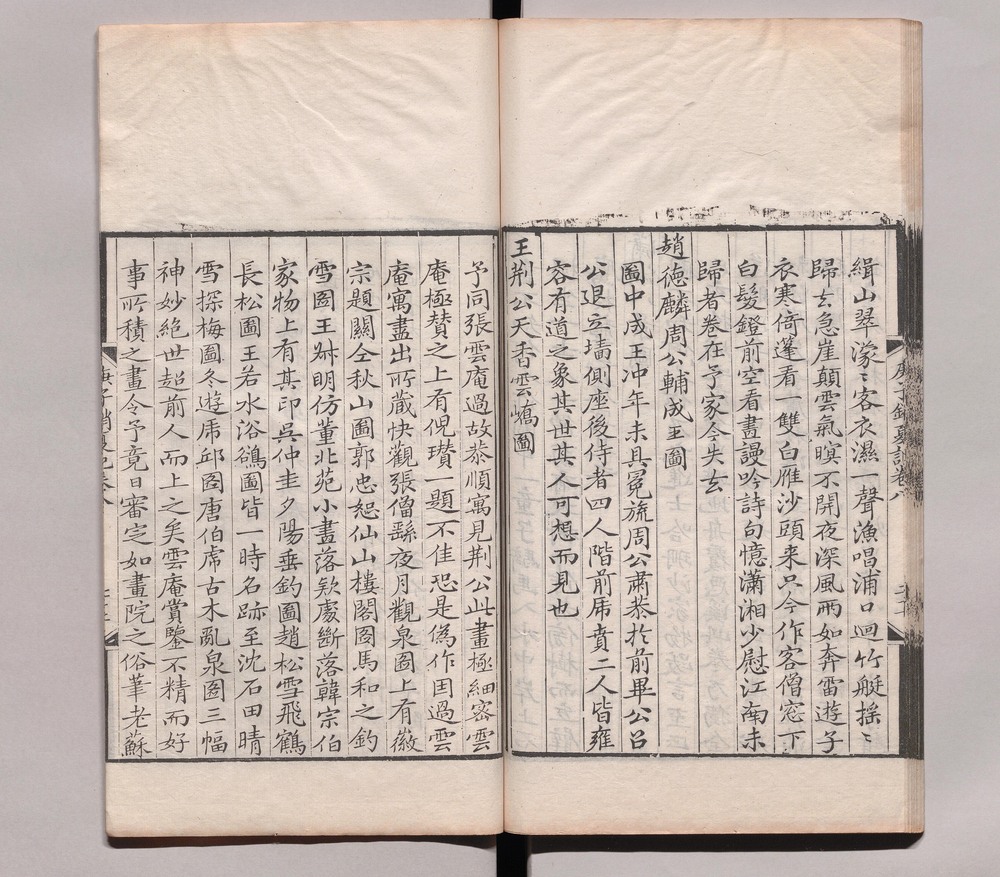 緝山翠濛〻客衣濕一聲漁唱浦口迴竹艇揺〻
歸去急崖顛雲氣暝不開夜深風雨如奔雷遊子
衣寒倚蓬看一雙白雁沙頭来只今作客僧窓下
白髮鐙前空看畫謾吟詩句憶瀟湘少慰江南未
歸者卷在予家今失去
趙德麟周公輔成王圖
圖中成王冲年未具冕旒周公肅恭扵前畢公吕
公退立墻側座後侍者四人階前虎賁二人皆雍
容有道之象其世其人可想而見也
王荆公天香雲嶠圖
予同張雲庵過故恭順寓見荆公此畫極細密雲
庵極賛之上有倪瓚一題不佳恐是偽作因過雲
庵寓盡出所藏快觀張僧繇夜月觀泉圖上有徽
宗題關仝秋山圖郭忠恕仙山樓閣圖馬和之釣
雪圖王叔明仿董北苑小畫落欵處斷落韓宗伯
家物上有其印吳仲圭夕陽垂釣圖趙松雪飛鶴
長松圖王若水浴鵝圖皆一時名跡至沈石田晴
雪探梅圖冬遊虎邱圖唐伯虎古木亂泉圖三幅
神妙絶世超前人而上之矣雲庵賞鑒不精而好
事所積之畫令予竟日審定如畫院之俗筆老蘇
庚子銷夏記卷八